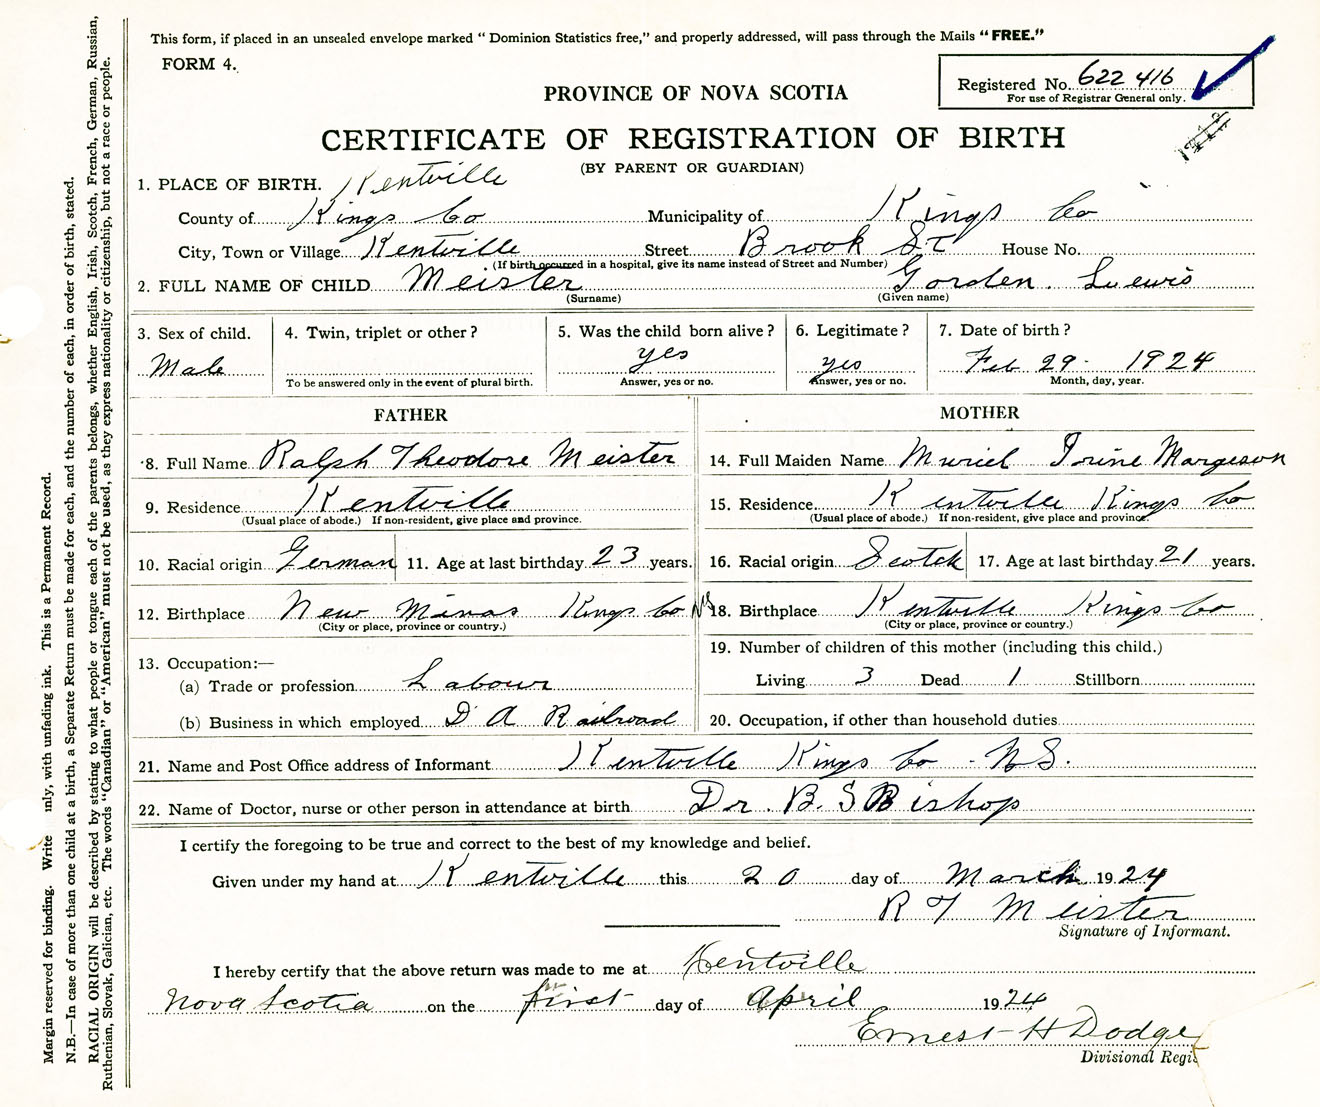 This form, if placed in an unsealed envelope marked “ Dominion Statistics free,” and properly addressed, will pass through the Mails “ FREE.”
FORM 4.
Registered No. 622 416
For use of Registrar General only.
PROVINCE OF NOVA SCOTIA
CERTIFICATE OF REGISTRATION OF BIRTH
(BY PARENT OR GUARDIAN)
1. PLACE OF BIRTH. Kentville
County of Kings Co Municipality of Kings Co
City, Town or Village Kentville Street Brook St House No.
(If birth occurred in a hospital, give its name instead of Street and Number)
2. FULL NAME OF CHILD Meister Gorden Luewis
(Surname) (Given name)
3. Sex of child. 4. Twin, triplet or other? 5. Was the child born alive? 6. Legitimate? 7. Date of birth?
Male yes yes Feb 29 1924
To be answered only in the event of plural birth. Answer, yes or no. Answer, yes or no. Month, day, year.
FATHER MOTHER
8. Full Name Ralph Theodore Meister 14. Full Maiden Name Muriel Irine Margeson
9. Residence Kentville 15. Residence Kentville Kings Co
(Usual place of abode.) If non-resident, give place and province. (Usual place of abode.) If non-resident, give place and province.
10. Racial origin German 11. Age at last birthday 23 years. 16. Racial origin Scotch 17. Age at last birthday 21 years.
12. Birthplace New Minas Kings Co NS 18. Birthplace Kentville Kings Co
(City or place, province or country.) (City or place, province or country.)
13. Occupation:— 19. Number of children of this mother (including this child.)
(a) Trade or profession Labour Living 3 Dead 1 Stillborn
(b) Business in which employed D A Railroad 20. Occupation, if other than household duties
21. Name and Post Office address of Informant Kentville Kings Co - N S.
22. Name of Doctor, nurse or other person in attendance at birth Dr. B. S Bishop
I certify the foregoing to be true and correct to the best of my knowledge and belief.
Given under my hand at Kentville this 20 day of March 1924
R T Meister
Signature of Informant.
I hereby certify that the above return was made to me at Kentville
Nova Scotia on the first day of April 1924
Ernest H Dodge
Divisional Regis
Margin reserved for binding. Write nly, with unfading ink. This is a Permanent Record.
N.B.—In case of more than one child at a birth, a Separate Return must be made for each, and the number of each, in order of birth, stated.
RACIAL ORIGIN will be described by stating to what people or tongue each of the parents belongs, whether English, Irish, Scotch, French, German, Russian,
Ruthenian, Slovak, Galician, etc. The words “Canadian” or “American” must not be used, as they express nationality or citizenship, but not a race or people.